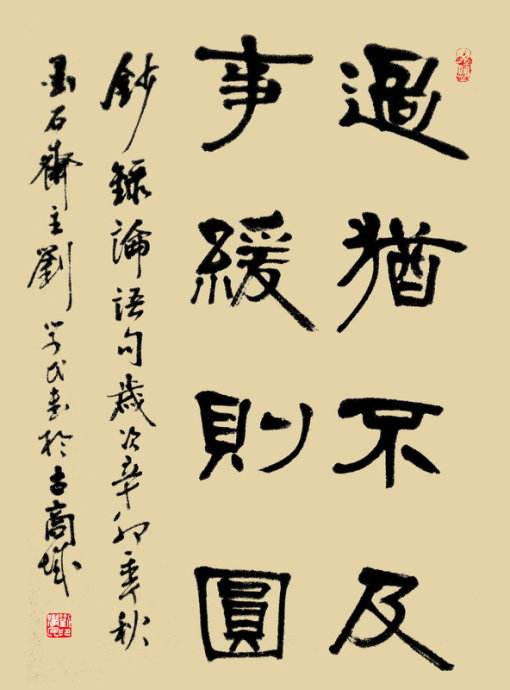 過猶不及
事緩則圓
鈔録論語句歲次辛卯季秋
墨石齋主劉学民書於古商城